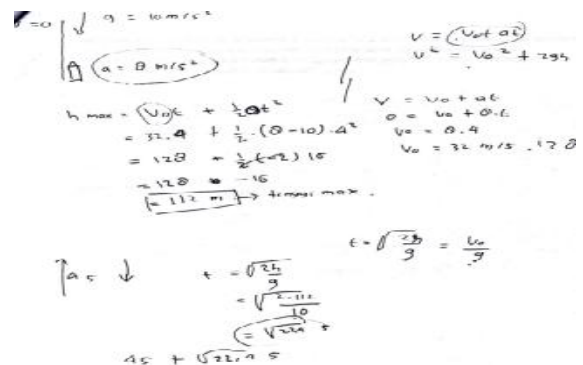 g = 10 m/s²
a = 8 m/s²
v = v₀ + at
v² = v₀² + 2gh
h max = v₀t + ½at²
= 32.4 + ½.(8-10).4²
= 128 + ½(-2) 16
= 128 -16
= 112 m →
v = v₀ + at
0 = v₀ + 8.t
v₀ = 8.4
v₀ = 32 m/s . 128
t = √2h/g = v₀/g
t = √2h/g
= √2.112/10
= √22,4 s
4s + √22,4 s